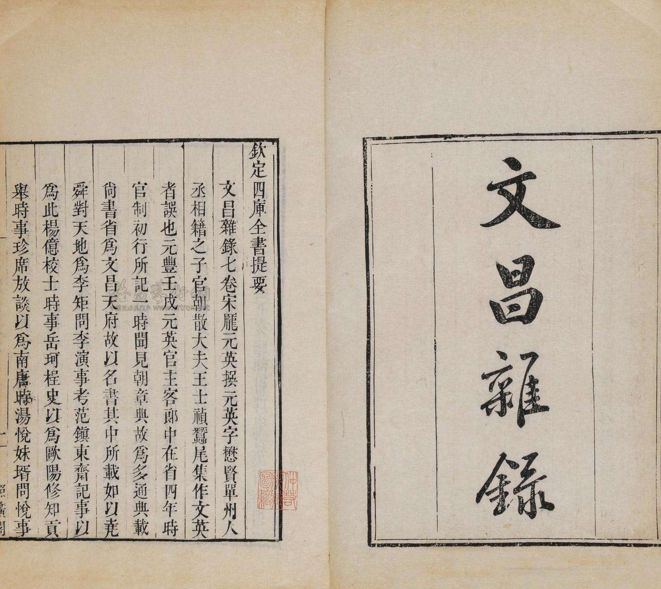 文昌雜錄
欽定四庫全書提要
文昌雜錄七卷宋龎元英撰元英字懋賢單州人
丞相籍之子官朝散大夫王士禎蠶尾集作文英
者誤也元豐壬戌元英官主客郎中在省四年時
官制初行所記一時聞見朝章典故爲多通典載
尚書省爲文昌天府故以名書其中所載如以堯
舜對天地爲李矩問李演事考范鎮東齋記事以
爲此楊億校士時事岳珂桯史以爲歐陽修知貢
舉時事珍席放談以爲南唐時湯悅妹壻問悅事